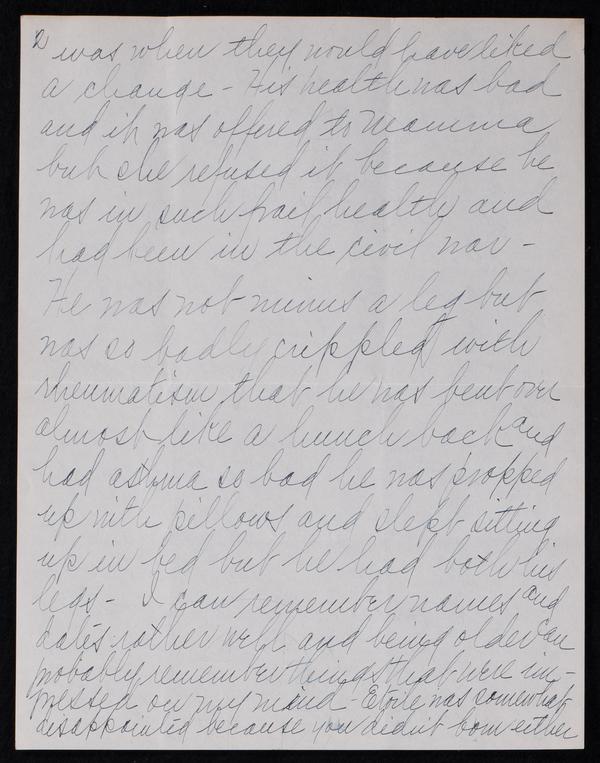 2 was when they would have liked
a change - His health was bad
and it was offered to Mamma
but she refused it because he
was in such frail health and
had been in the civil war -
He was not minus a leg but
was so badly crippled with
rheumatism that he was bent over
almost like a hunch back and
had asthma so bad he was propped
up with pillows and slept sitting
up in bed but he had both his
legs - I can remember names and
dates rather well and being older can
probably remember things that were im-
pressed on my mind - Etoile was somewhat
disappointed because you didn't come either